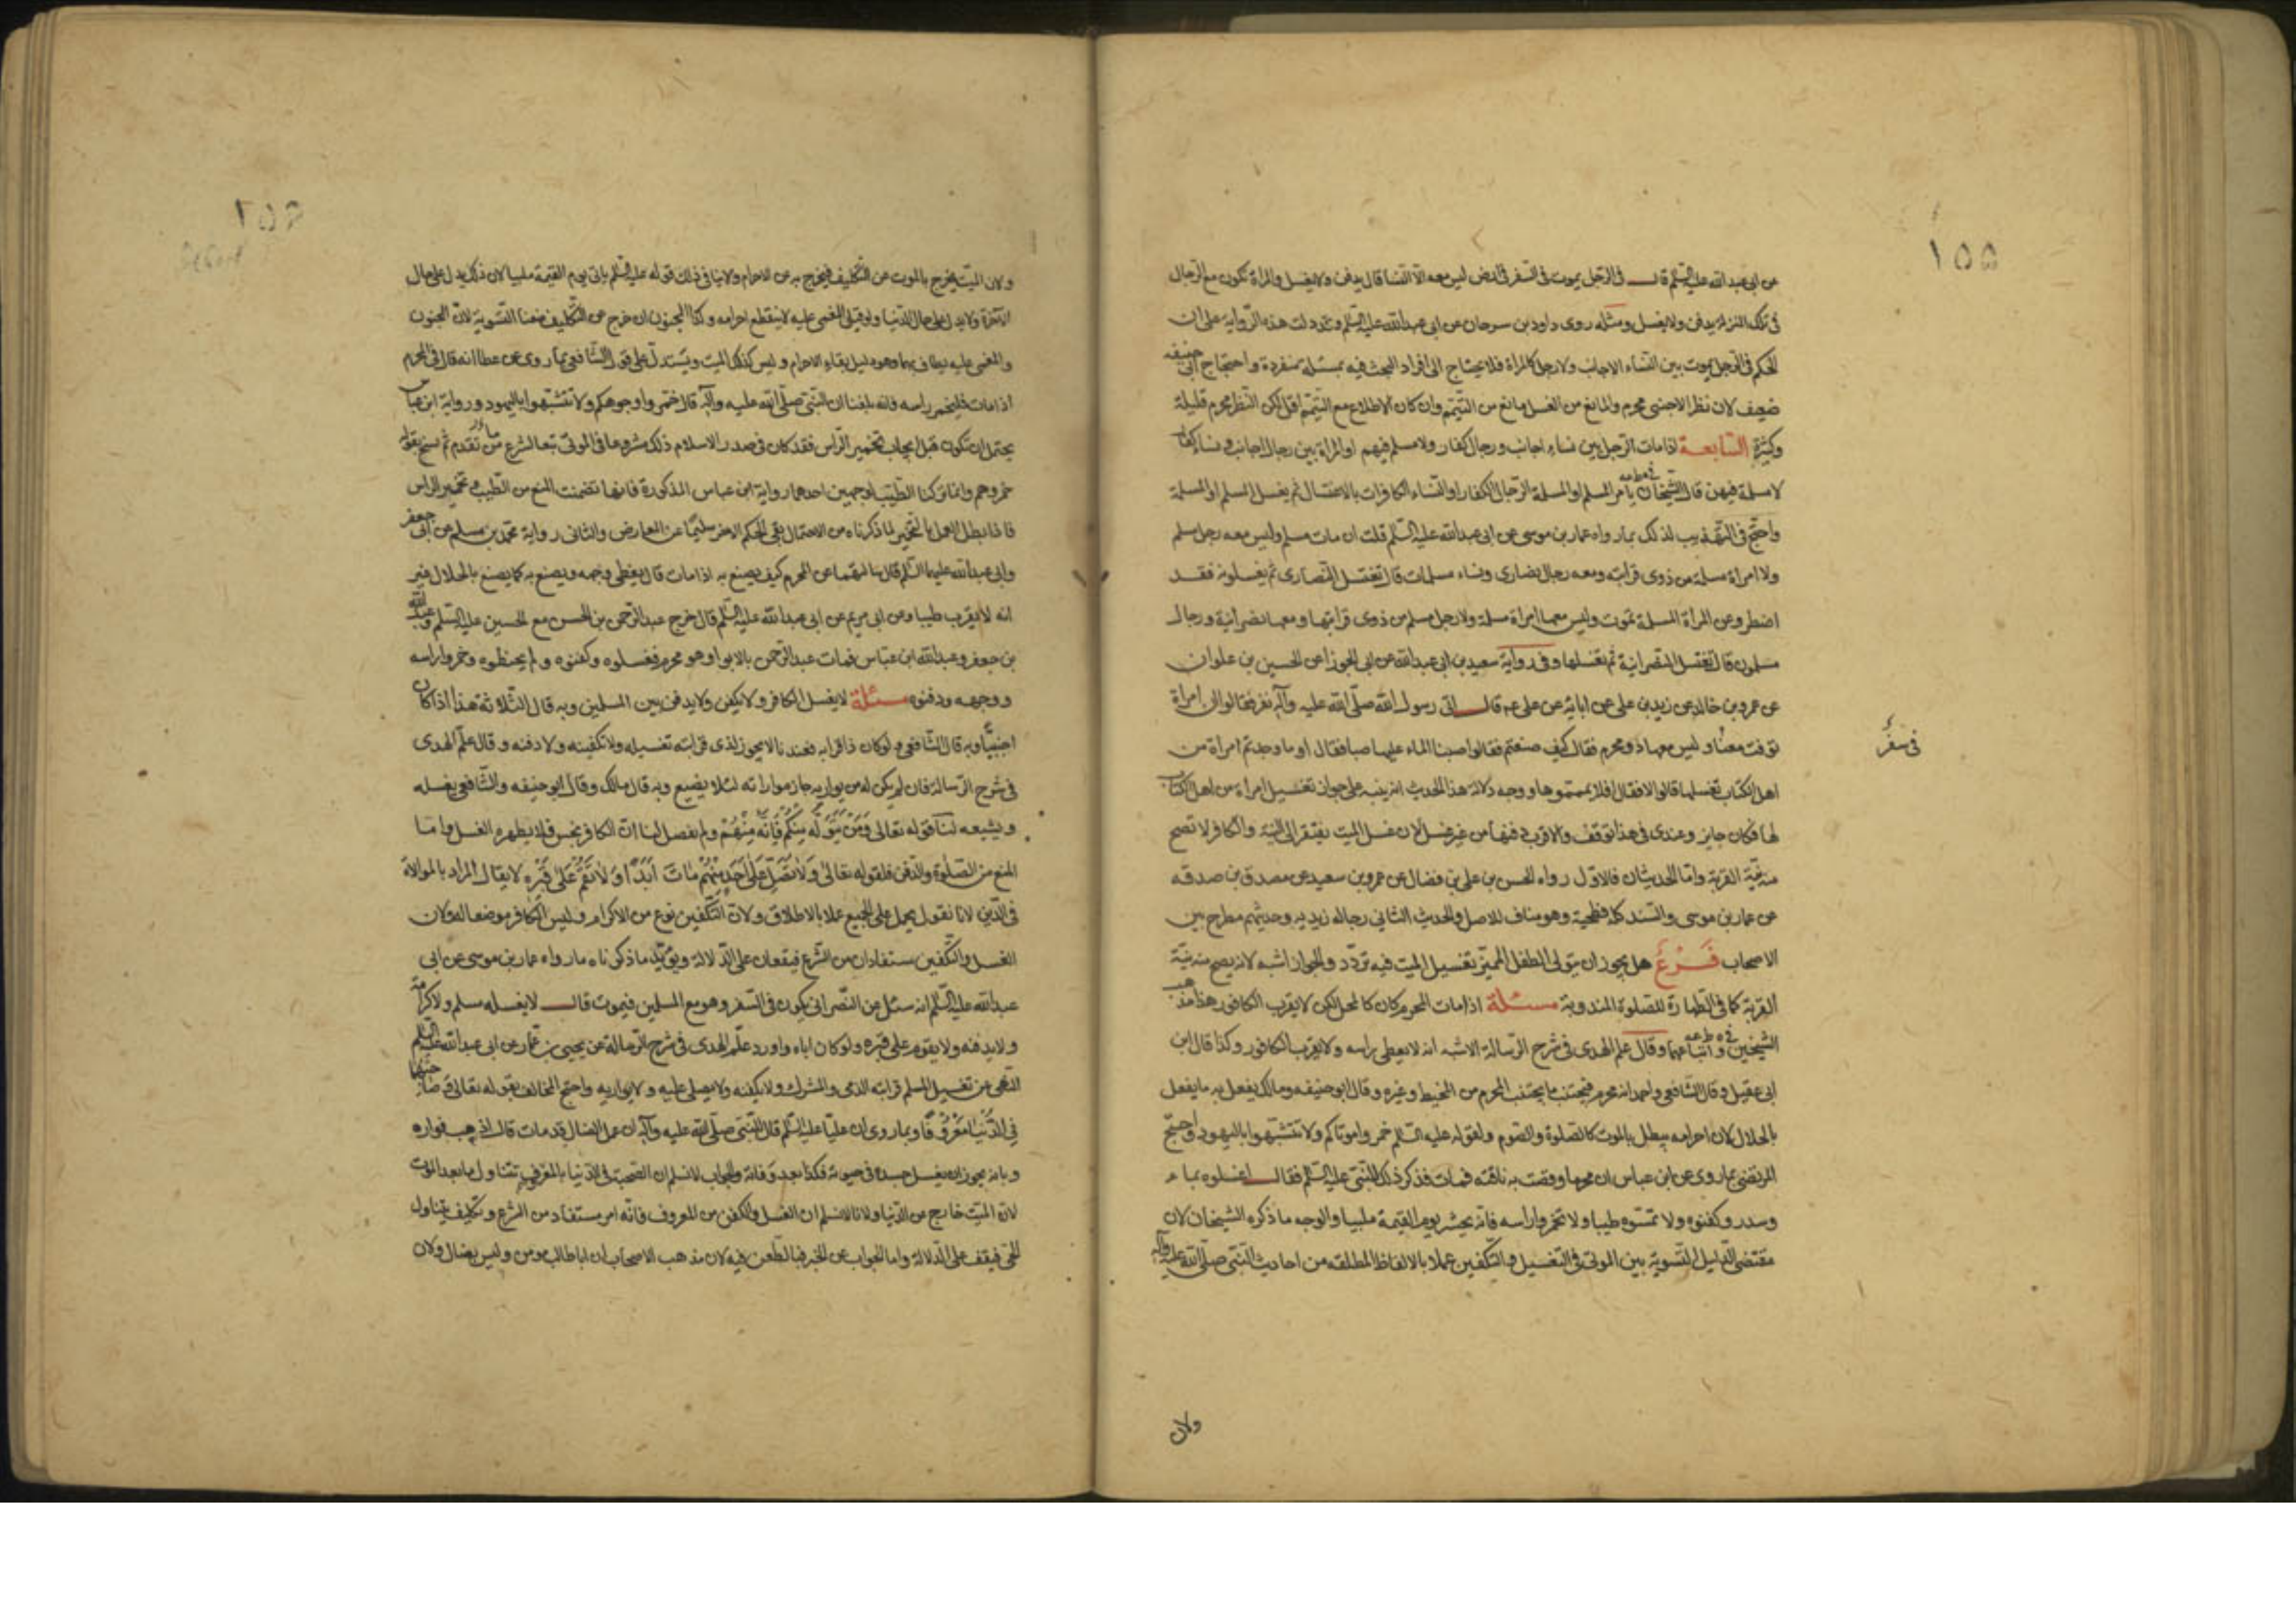 ١٥٥
عن ابى عبد الله عليه السلم قال فى الرجل يموت فى السفر فى ارض ليس معه الا النسا قال يدفن ولا يغسل والمراة تكون مع الرجال
فى تلك المنزلة يدفن ولا يغسل ومثله روى داود بن سرحان عن ابى عبد الله عليه السلم وقد دلت هذه الرواية على ان
الحكم فى الرجل يموت بين النساء الاجانب ولا رجل كالمراة فلا يحتاج الى افراد البحث فيه بمسئلة بمنفردة واحتجاج ابى حنيفه
ضعيف لان نظر الاجنبى محرم والمانع من الغسل مانع من التيمم وان كان الاطلاع مع التيمم اقل لكن النظر محرم قليله
وكثيره السابعة اذا مات الرجل بين نساء اجانب ورجال كفار ولا مسلم فيهم او المراة بين رجال اجانب ونساء كفار
لا مسلمة فيهن قال الشيخان يامر المسلم او المسلمة الرجال الكفار او النساء الكافرات بالاغتسال ثم يغسل المسلم او المسلمة
واحتج فى التهذيب لذلك بما رواه عمار بن موسى عن ابى عبد الله عليه السلم قلت ان مات مسلم وليس معه رجل مسلم
ولا امراة مسلمة من ذوى قرابته ومعه رجال نصارى ونساء مسلمات قال تغتسل النصارى ثم يغسلونه فقد
اضطر وعن المراة المسلمة تموت وليس معها امراة مسلمة ولا رجل مسلم من ذوى قرابتها ومعها نصرانية ورجال
مسلمون قال تغتسل النصرانية ثم تغسلها وفى رواية سعيد بن ابى عبد الله عن ابى الجوزا عن الحسين بن علوان
عن عمرو بن خالد عن زيد بن على عن ابائه عن على عم قال اتى رسول الله صلى الله عليه وآله نفر فقالوا ان امراة
توفت معنا وليس معها ذو محرم فقال كيف صنعتم فقالوا صببنا الماء عليها صبا فقال او ما وجدتم امراة من
فى سفر
اهل الكتاب تغسلها قالوا لا فقال افلا يممتموها ووجه دلالة هذا الحديث انه ينبه على جواز تغسيل امراة من اهل الكتاب
لها فكان جايز وعندى فى هذا توقف والاقرب دفنها من غير غسل لان غسل الميت يفتقر الى النية والكافر لا تصح
منه نية القربة واما الحديثان فالاول رواه الحسن بن على بن فضال عن عمرو بن سعيد عن مصدق بن صدقه
عن عمار بن موسى والسند كله فطحية وهو مناف للاصل والحديث الثانى رجاله زيديه وحديثهم مطرح بين
الاصحاب فرع هل يجوز ان يتولى الطفل المميز تغسيل الميت فيه تردد والجواز اشبه لانه يصح منه نية
القربة كما فى الطهارة للصلوة المندوبة مسئلة اذا مات المحرم كان كالمحل لكن لا يقرب الكافور هذا مذهب
الشيخين واتباعهما وقال علم الهدى فى شرح الرسالة الاشبه انه لا يغطى راسه ولا يقرب الكافور وكذا قال ابن
ابى عقيل وقال الشافعى واحمد انه محرم فيجتنب ما يجتنب المحرم من المخيط وغيره وقال ابو حنيفه ومالك يفعل به ما يفعل
بالحلال لان احرامه يبطل بالموت كالصلوة والصوم ولقوله عليه السلم خمروا موتاكم ولا تتشبهوا باليهود واحتج
المرتضى بما روى عن ابن عباس ان محرما وقصت به ناقته فمات فذكر ذلك للنبى عليه السلم فقال اغسلوه بماء
وسدر وكفنوه ولا تمسوه طيبا ولا تخمروا راسه فانه يحشر يوم القيمة ملبيا والوجه ما ذكره الشيخان لان
مقتضى الدليل التسوية بين الموتى فى التغسيل والتكفين عملا بالالفاظ المطلقه من احاديث النبى صلى الله عليه وآله
ولان
١٥٦
ولان الميت يخرج بالموت عن التكليف فيخرج به عن الاحرام ولا ينافى ذلك قوله عليه السلم ياتى يوم القيمة ملبيا لان ذلك يدل على حال
الاخرة ولا يدل على حال الدنيا ولو قيل المغمى عليه لا ينقطع احرامه وكذا المجنون ان خرج عن التكليف منعنا التسوية لان المجنون
والمغمى عليه يطاف بهما وهو دليل بقاء الاحرام وليس كذلك الميت ويستدل على قول الشافعى بما روى عن عطا انه قال فى المحرم
اذا مات فليخمر راسه فانه بلغنا ان النبى صلى الله عليه وآله قال خمروا وجوهكم ولا تتشبهوا باليهود ورواية ابن عباس
يحتمل ان تكون قبل ايجاب تخمير الراس فقد كان فى صدر الاسلام ذلك مشروعا فى الموتى تبعا لشرع من تقدم ثم نسخ بقوله
خمروهم وانما تركنا الطيب لوجهين احدهما رواية ابن عباس المذكورة فانها تضمنت المنع من الطيب وتخمير الراس
فاذا بطل العمل بالتخمير لما ذكرناه من الاحتمال بقى الحكم الاخر سليما عن المعارض والثانى رواية محمد بن مسلم عن ابى جعفر
وابى عبد الله عليهما السلم قال سالتهما عن المحرم كيف يصنع به اذا مات قال يغطى وجهه ويصنع به كما يصنع بالحلال غير
انه لا يقرب طيبا وعن ابى مريم عن ابى عبد الله عليه السلم قال خرج عبد الرحمن بن الحسن مع الحسين عليه السلم وعبد الله
بن جعفر وعبد الله ابن عباس فمات عبد الرحمن بالابوا وهو محرم فغسلوه وكفنوه ولم يحنطوه وخمروا راسه
ووجهه ودفنوه مسئلة لا يغسل الكافر ولا يكفن ولا يدفن بين المسلمين وبه قال الثلاثة هذا اذا كان
اجنبيا وبه قال الشافعى ولو كان ذا قرابه فعندنا لا يجوز لذى قرابته تغسيله ولا تكفينه ولا دفنه وقال علم الهدى
فى شرح الرسالة فان لم يكن له من يواريه جاز مواراته لئلا يضيع وبه قال مالك وقال ابو حنيفه والشافعى يغسله
ويشيعه لنا قوله تعالى وَمَنْ يَتَوَلَّهُمْ مِنْكُمْ فَاِنَّهُ مِنْهُمْ ولم يفصل لنا ان الكافر نجس فلا يطهره الغسل واما
المنع من الصلوة والدفن فلقوله تعالى وَلَا تُصَلِّ عَلَى اَحَدٍ مِنْهُمْ مَاتَ اَبَدًا وَلَا تَقُمْ عَلَى قَبْرِهِ لا يقال المراد بالموالاة
فى الدين لانا نقول يحمل على الجميع عملا بالاطلاق ولان التكفين نوع من الاكرام وليس الكافر موضعا له ولان
الغسل والتكفين مستفادان من الشرع فيقفان على الدلالة ويؤيد ما ذكرناه ما رواه عمار بن موسى عن ابى
عبد الله عليه السلم انه سئل عن النصرانى يكون فى السفر وهو مع المسلمين فيموت قال لا يغسله مسلم ولا كرامة
ولا يدفنه ولا يقوم على قبره ولو كان اباه واورد علم الهدى فى شرح الرسالة عن يحيى بن عمار عن ابى عبد الله عليه السلم
النهى عن تغسيل المسلم قرابته الذمى والمشرك ولا يكفنه ولا يصلى عليه ولا يواريه واحتج المخالف بقوله تعالى وَصَاحِبْهُمَا
فِى الدُّنْيَا مَعْرُوفًا وبما روى ان عليا عليه السلم قال للنبى صلى الله عليه وآله ان عمك الضال قد مات قال اذهب فواره
وبانه يجوز ان يغسل جسده فى حيوته فكذا بعد وفاته والجواب لا نسلم ان الصحبة فى الدنيا بالمعروف تتناول ما بعد الموت
لان الميت خارج عن الدنيا ولانا لا نسلم ان الغسل والكفن من المعروف فانه امر مستفاد من الشرع وتكليف يتناول
الحى فيقف على الدلالة واما الجواب عن الخبر فبالطعن فيه لان مذهب الاصحاب ان ابا طالب مؤمن وليس بضال ولان